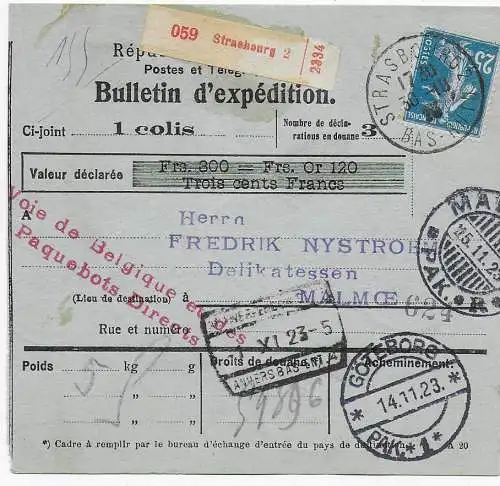 155
059 Strasbourg 2 2334
Répu
Postes et Télég
Bulletin d'expédition.
25
POSTES
STRASBOURG
BAS
Ci-joint 1 colis
Nombre de décla-
rations en douane 3
Valeur déclarée
Frs. 300 = Frs. Or 120
Trois cents Francs
Voie de Belgique et des
Paquebots Directs
A
Herrn
FREDRIK NYSTROEM
Delikatessen
(Lieu de destination) à MALMŒ
624
MAL
15.11.2
PAK. R
Rue et numéro
XI 23-5
ANVERS BAS
Poids kg
g
Droits de douane
Acheminement.
" "
" "
54896
GÖTEBORG
14.11.23.
PAK. 1
*) Cadre à remplir par le bureau d'échange d'entrée du pays de destination. A 20